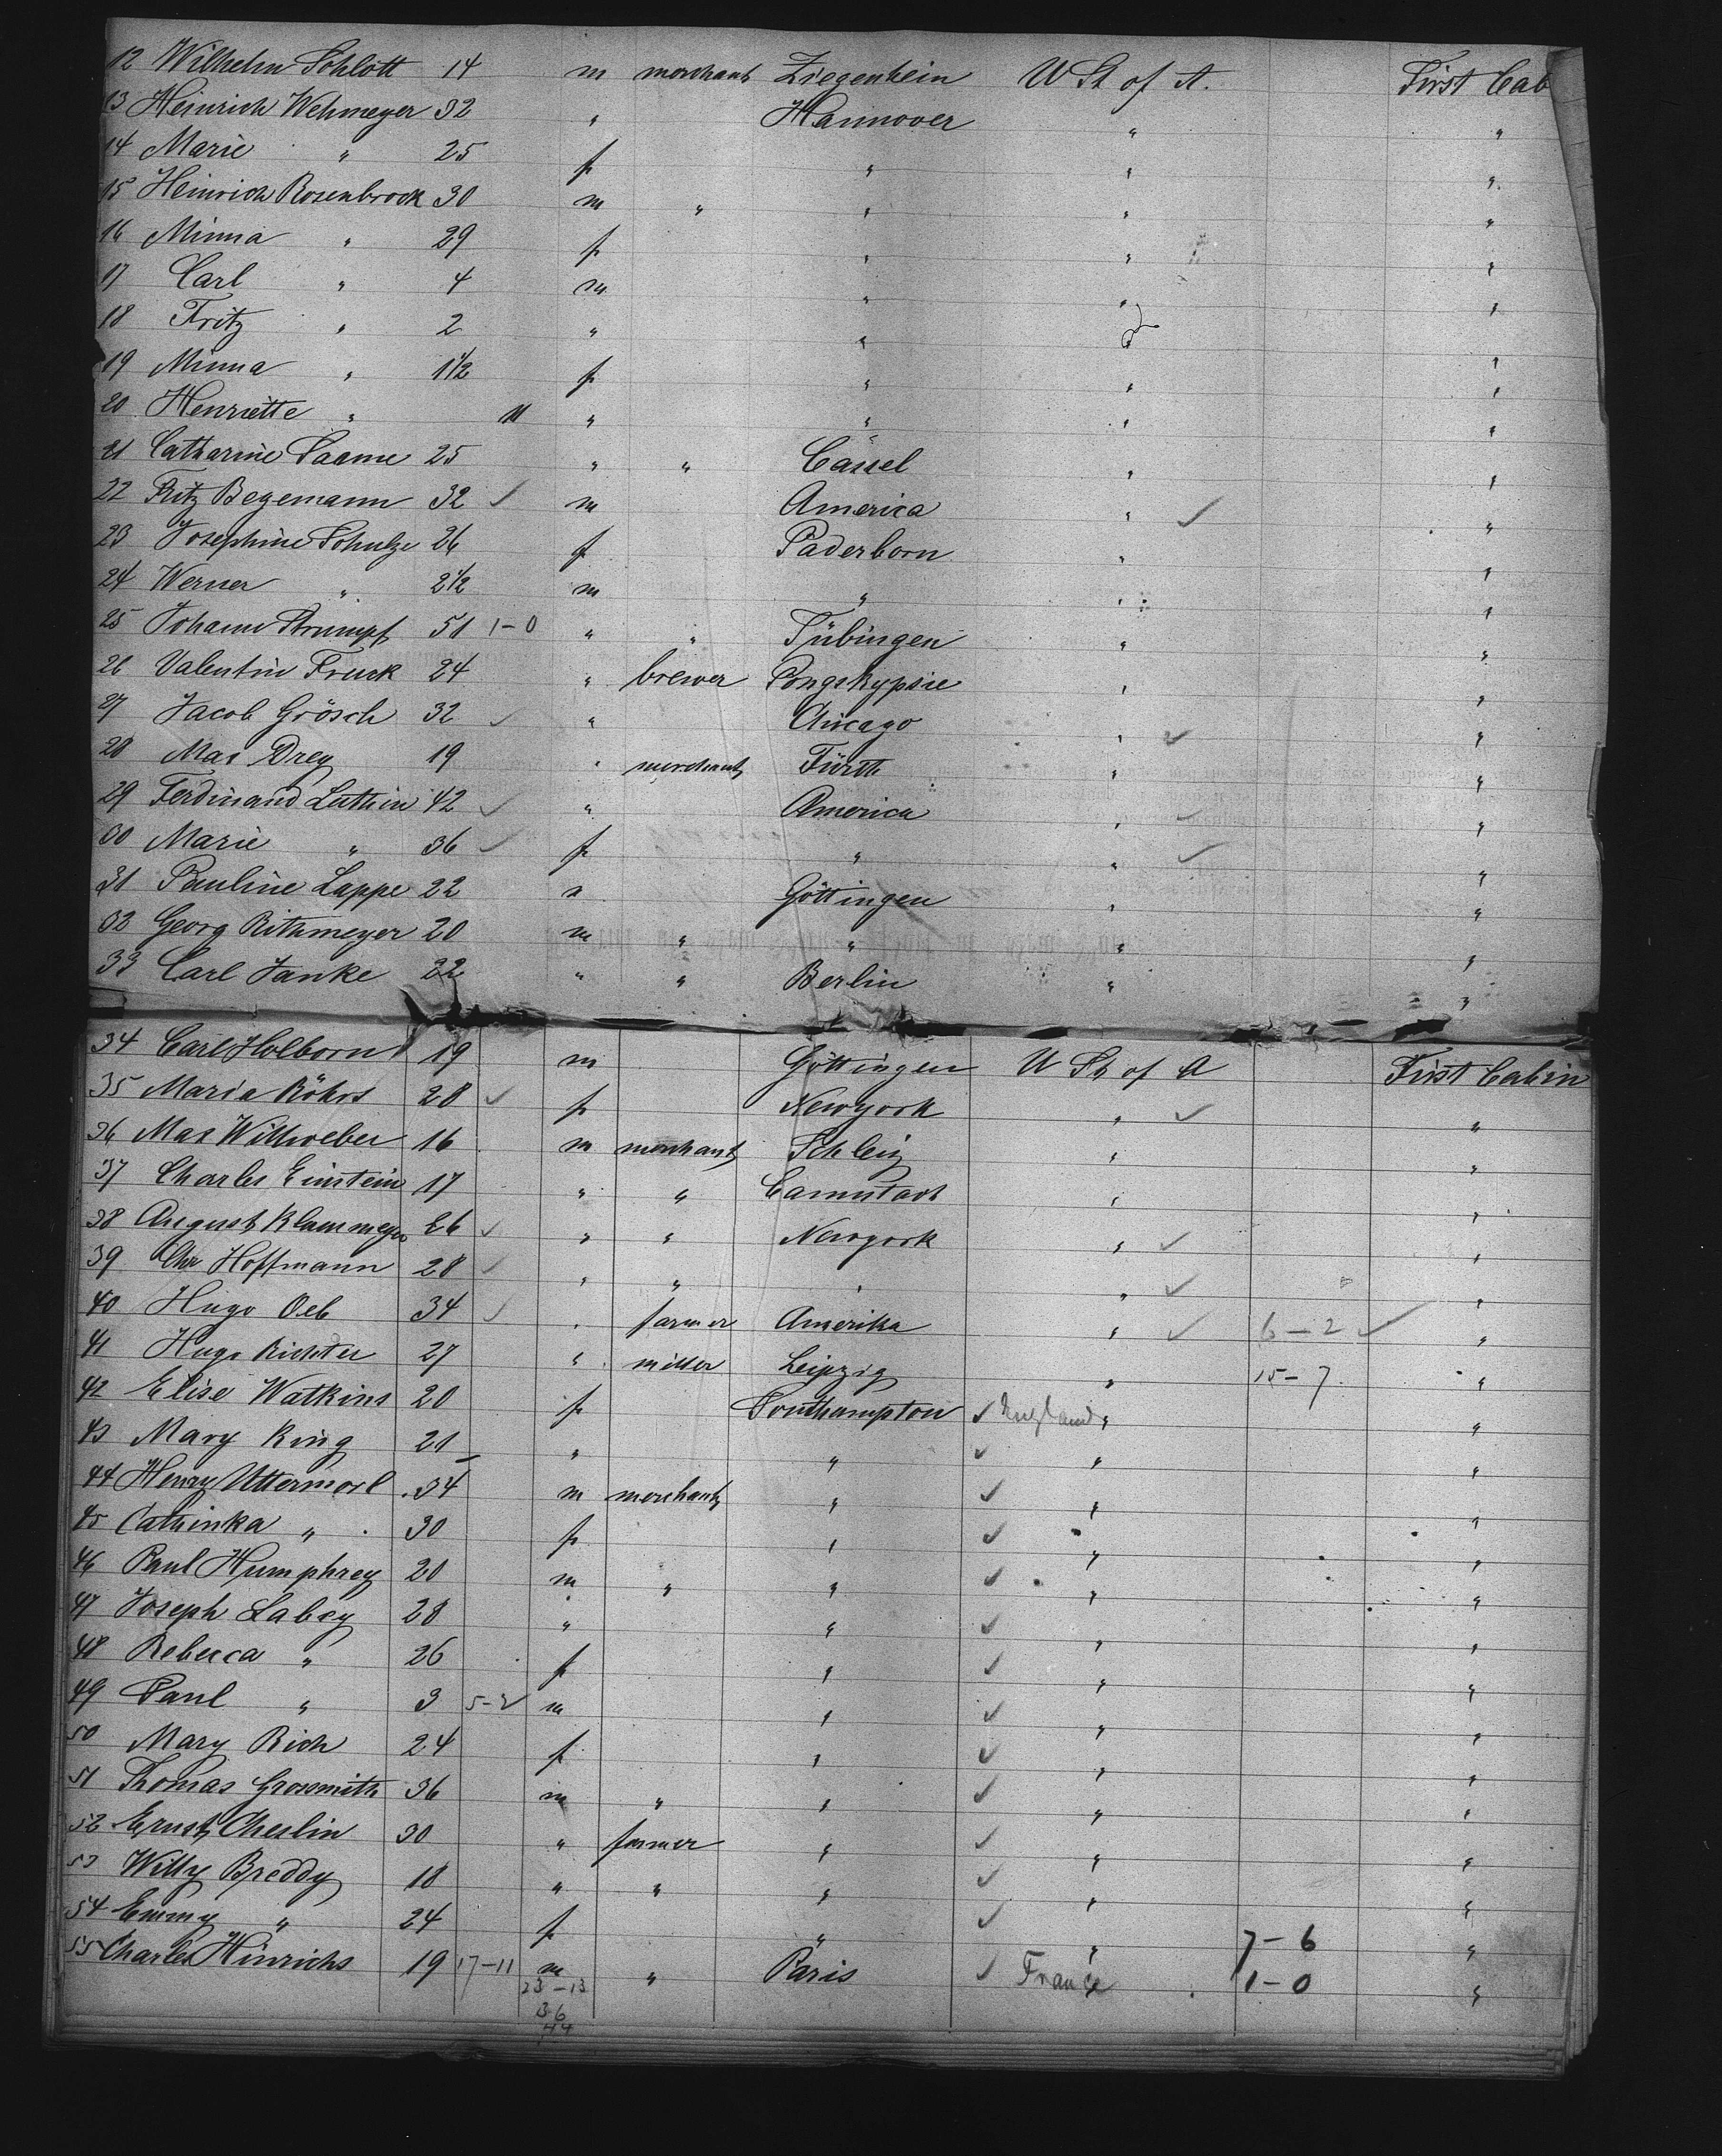 12 Wilhelm Schlott 14 m merchant Ziegenhein U St of A. First Cab
13 Heinrich Wehmeyer 32 " Hannover " "
14 Marie " 25 f " " "
15 Heinrich Rosenbrock 30 m " " " "
16 Minna " 29 f " " "
17 Carl " 4 m " " "
18 Fritz " 2 " " " "
19 Minna " 1 1/2 f " " "
20 Henriette " 11 " " " "
21 Catharine Saame 25 " " Cassel " "
22 Fritz Begemann 32 ✓ m America " ✓ "
23 Josephine Schulze 26 f Paderborn " "
24 Werner " 2 1/2 m " " "
25 Johann Strumpf 51 1-0 " " Tübingen " "
26 Valentin Fruck 24 " brewer Pongskypsie " "
27 Jacob Grösch 32 ✓ " Chicago " ✓ "
28 Max Drey 19 " merchant Fürth " "
29 Ferdinand Luthin 42 ✓ " America " ✓ "
30 Marie " 36 ✓ f " " ✓ "
31 Pauline Lappe 22 " Göttingen " "
32 Georg Rithmeyer 20 m " " " "
33 Carl Janke 22 " " Berlin " "
34 Carl Holborn 19 m Göttingen U St of A First Cabin
35 Maria Röhrs 28 ✓ f Newyork " ✓ "
36 Max Willweber 16 m merchant Schleiz " "
37 Charles Einstein 17 " " Cannstadt " "
38 August Klammeyer 26 ✓ " " Newyork " ✓ "
39 Chr Hoffmann 28 ✓ " " " " ✓ "
40 Hugo Oeb 34 ✓ " farmer Amerika " ✓ 6-2 ✓ "
41 Hugo Richter 27 " miller Leipzig " 15-7 "
42 Elise Watkins 20 f Southampton ✓ England " "
43 Mary King 21 " " ✓ " "
44 Henry Uttermorl 34 m merchant " ✓ " "
45 Cathinka " 30 f " ✓ " "
46 Paul Humphrey 20 m " " ✓ " "
47 Joseph Labey 28 " " ✓ " "
48 Rebecca " 26 f " ✓ " "
49 Paul " 3 5-2 m " ✓ " "
50 Mary Rich 24 f " ✓ " "
51 Thomas Grossmith 36 m " " ✓ " "
52 Ernst Cheslin 30 " farmer " ✓ " "
53 Willy Breddy 18 " " " ✓ " "
54 Emmy " 24 f " ✓ " 7-6 "
55 Charles Hinrichs 19 17-11 m " Paris ✓ France " 1-0 "
23-13
36
44